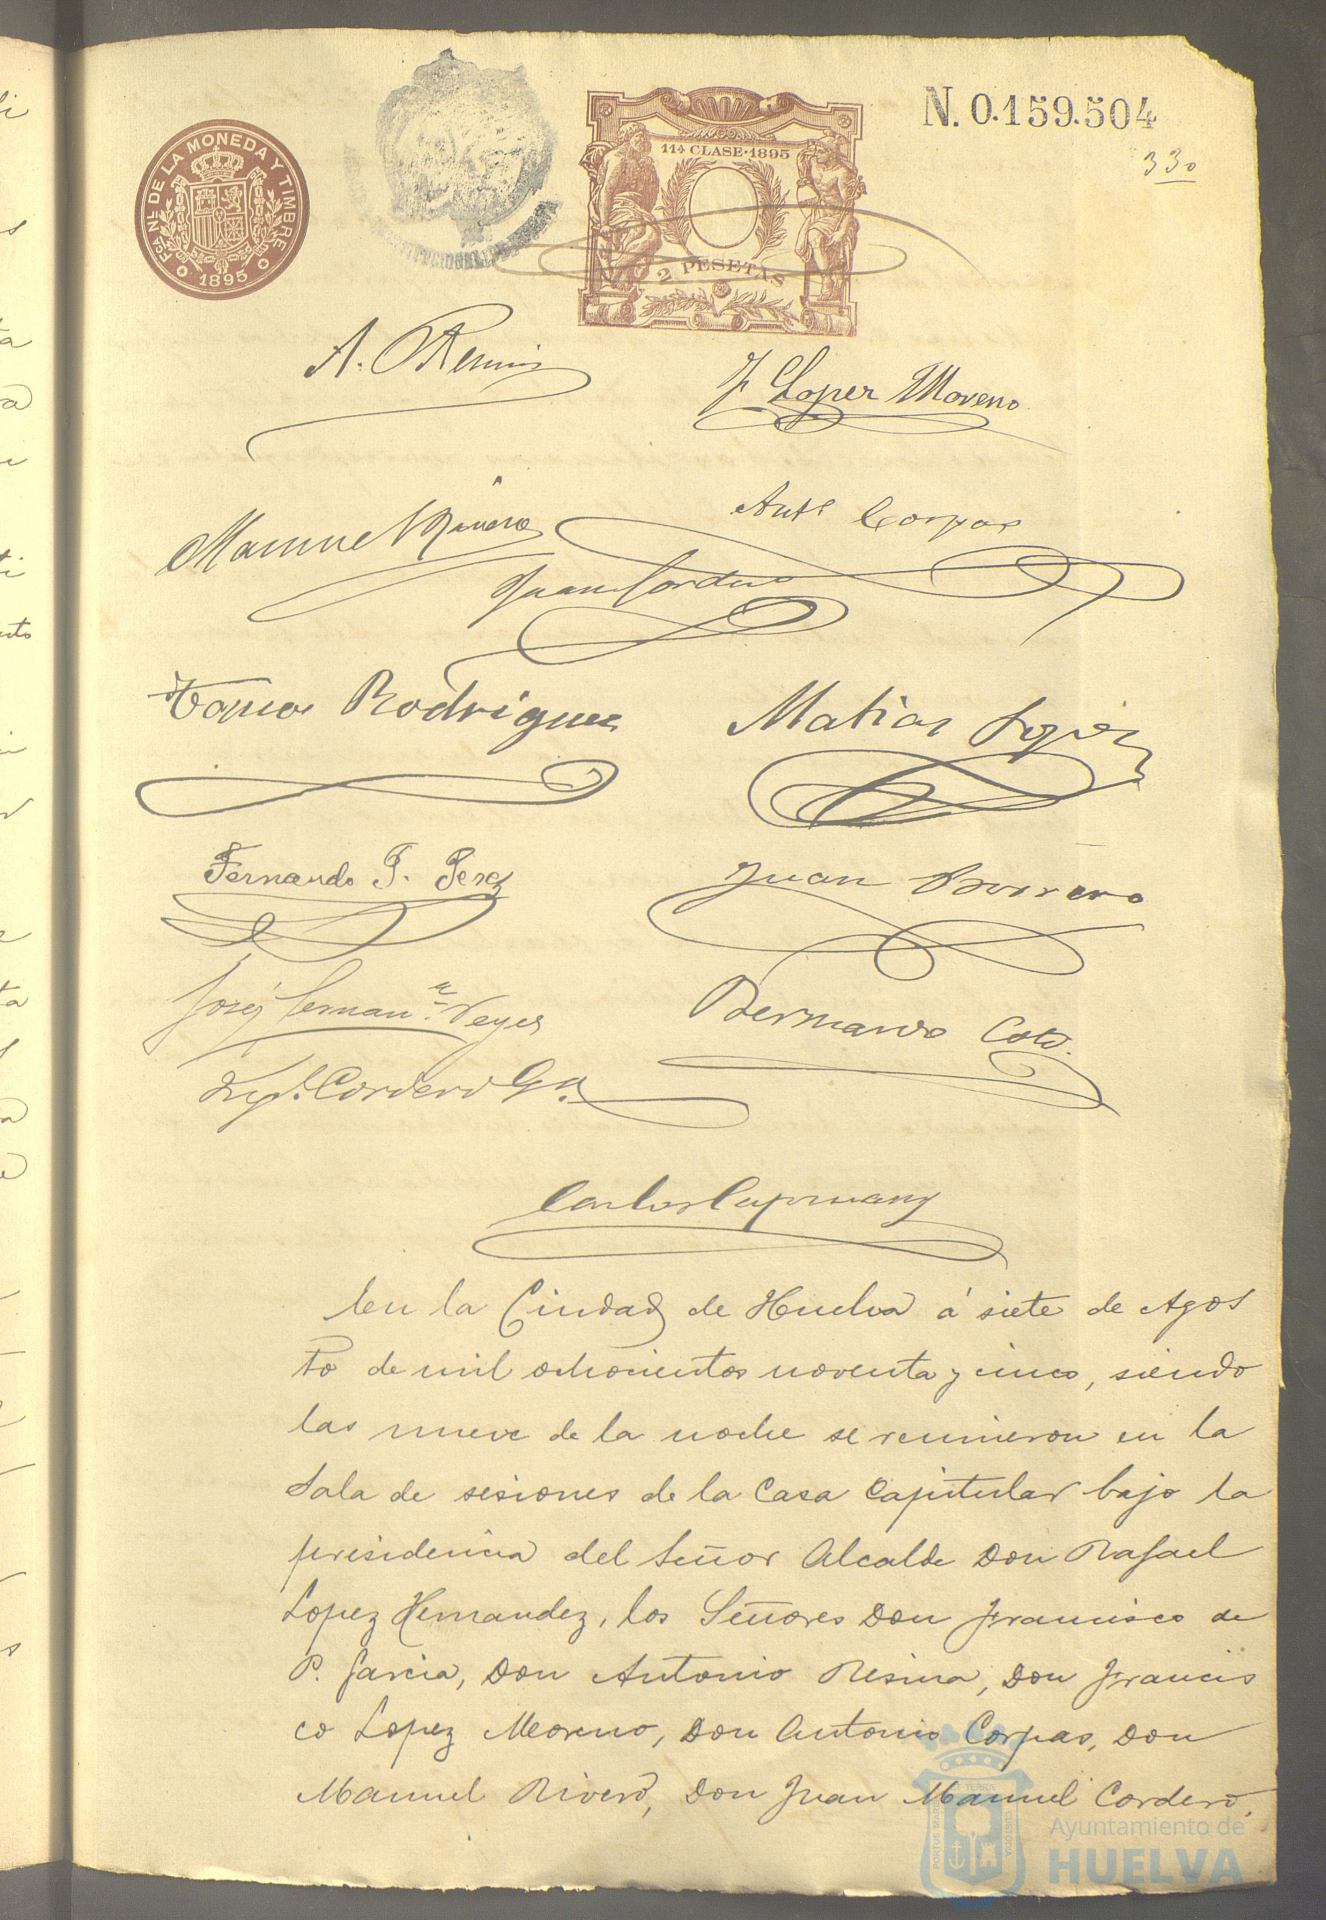 N. 0.159.504
330
FCA. NL. DE LA MONEDA Y TIMBRE
1895
11ª CLASE · 1895
2 PESETAS
A. Resina
F Lopez Moreno
Manuel Rivero
Antº Corpas
Juan Cordero
Rodriguez
Matias Lopez
Fernando P. Perez
Juan Borrero
José Fernan
Bernardo Coto.
Cordero Gª
Carlos Capmany
En la Ciudad de Huelva á siete de Agos
to de mil ochocientos noventa y cinco, siendo
las nueve de la noche se reunieron en la
Sala de sesiones de la Casa Capitular bajo la
presidencia del Señor Alcalde Don Rafael
Lopez Hernandez, los Señores Don Francisco de
P. Garcia, Don Antonio Resina, Don Francis
co Lopez Moreno, Don Antonio Corpas, Don
Manuel Rivero, Don Juan Manuel Cordero,
Ayuntamiento de
HUELVA